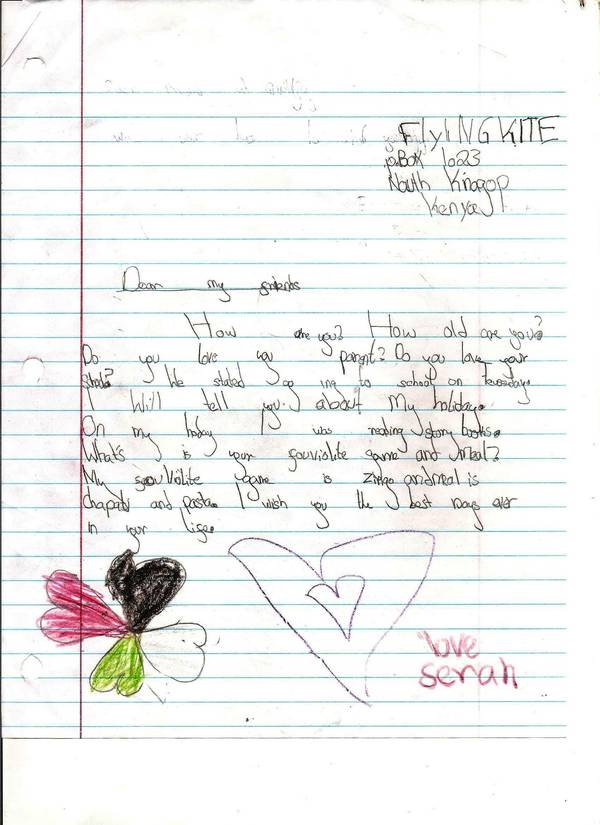 FlyINGKITE
p.Box 1023
North Kinagop
Kenya
Dear my friends
How are you? How old are you?
Do you love you parent? Do you love your
We stated go ing to school on
I Will tell you about My holiday.
On my holiday I was reading story books.
What's is your gouviolite game and meal?
My gouviolite game is and meal is
chapati and pasta. I wish you the best ever
in your lige.
love
serah